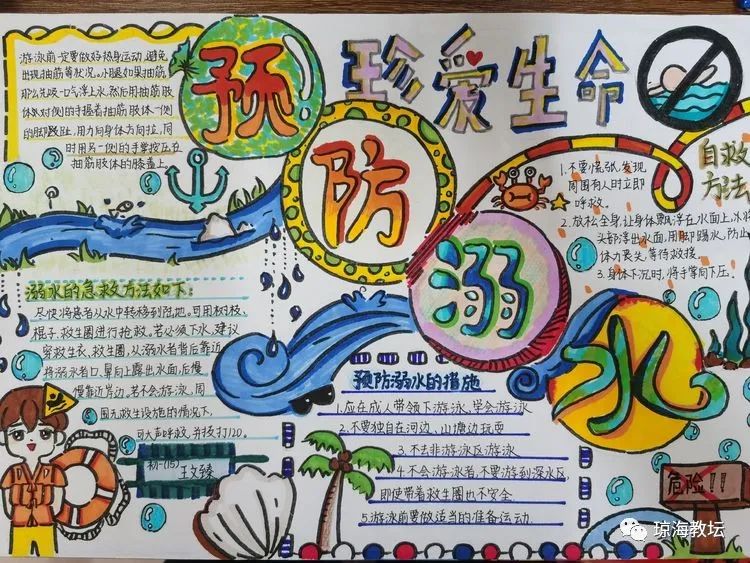 珍爱生命
预
防
溺
水
游泳前一定要做好热身运动,避免
出现抽筋等状况。小腿如果抽筋,
那么先吸一口气浮上水,然后用抽筋肢
体对侧的手握着抽筋肢体一侧
的脚趾,用力向身体方向拉,同
时用另一侧的手掌按压在
抽筋肢体的膝盖上。
自救
方法
1.不要慌张,发现
周围有人时立即
呼救。
2.放松全身,让身体飘浮在水面上,
头部浮出水面,用脚踢水,防止
体力丧失,等待救援
3.身体下沉时,将手掌向下压。
溺水的急救方法如下:
尽快将患者从水中转移到陆地。可用树枝、
棍子、救生圈进行抢救。若必须下水,建议
穿救生衣、救生圈,从溺水者背后靠近
将溺水者口、鼻向上露出水面,后慢
慢靠近岸边,若不会游泳,周
围无救生设施的情况下,
可大声呼救,并拨打120。
初一(15)
王文臻
预防溺水的措施
1.应在成人带领下游泳,学会游泳
2.不要独自在河边、山塘边玩耍
3.不去非游泳区游泳
4.不会游泳者,不要游到深水区,
即使带着救生圈也不安全
5.游泳前要做适当的准备运动.
危险!!
琼海教坛